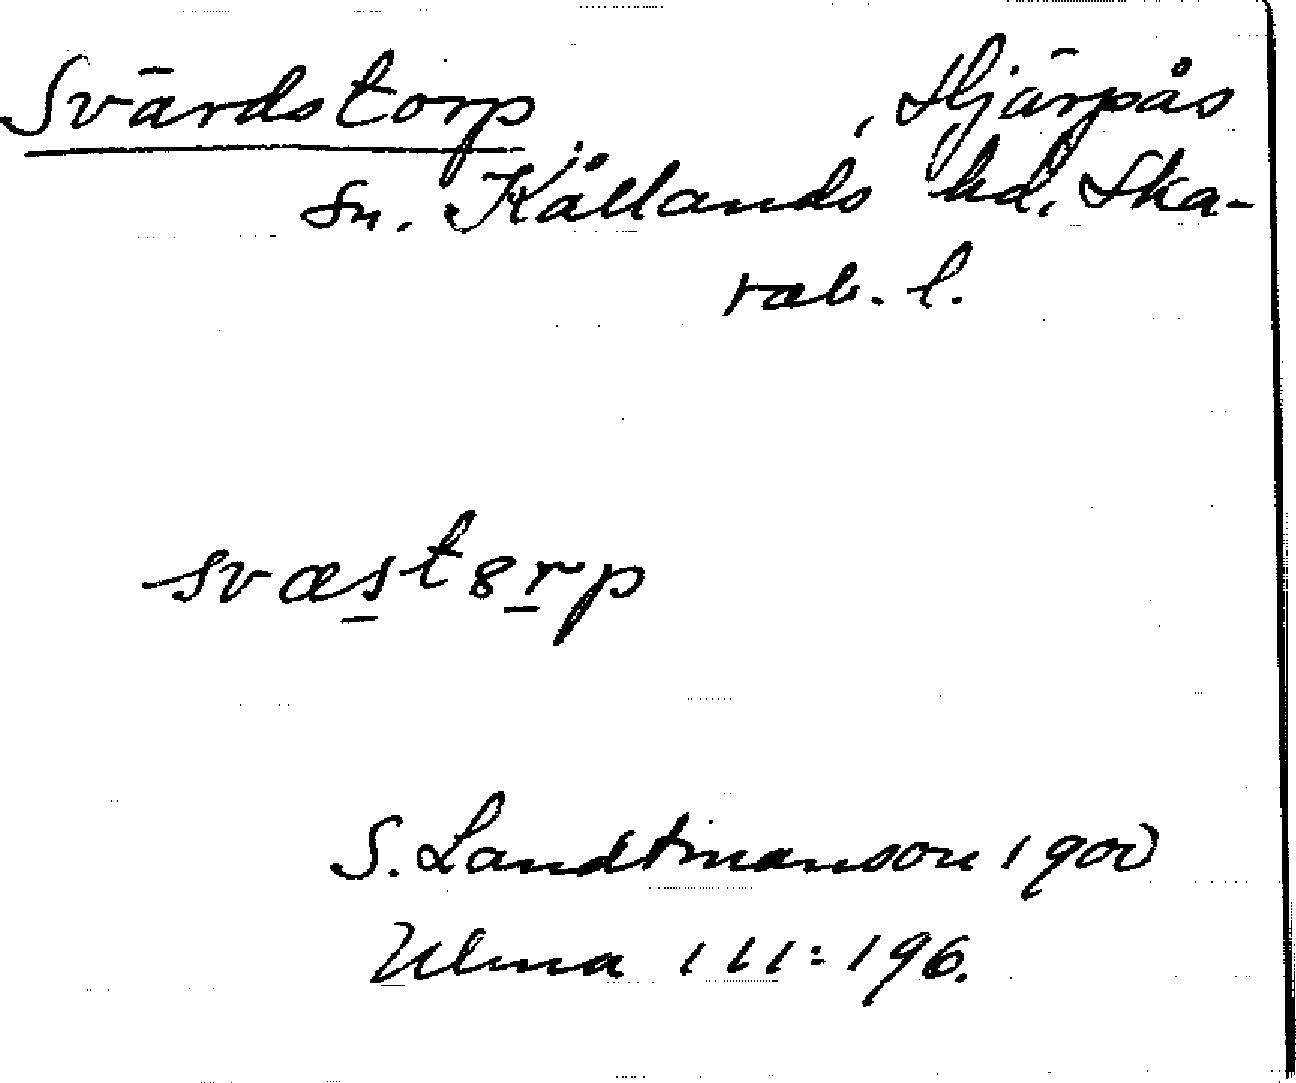 Svärdstorp, Hjärpås
sn. Kållands hd, Ska-
rab. l.
svæst8rp
S. Landtmanson 1900
Ulma 111:196.